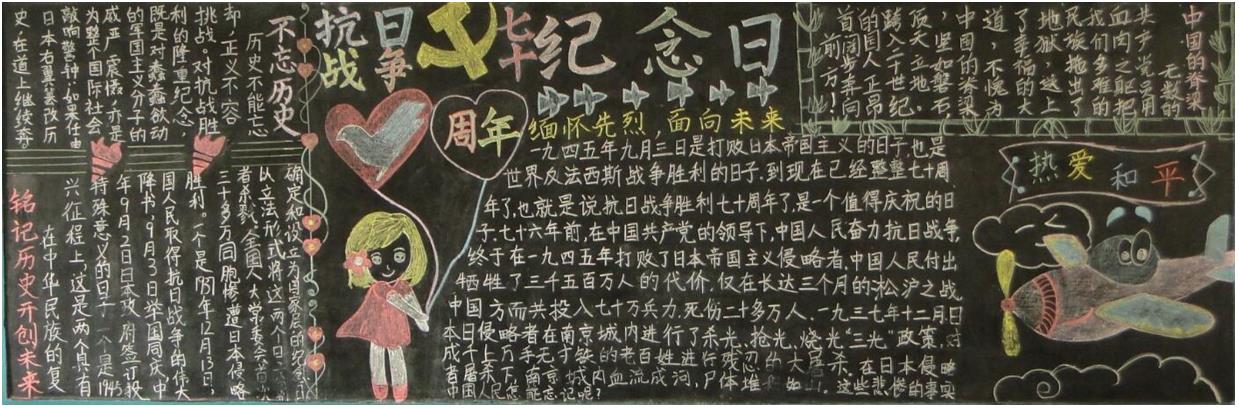 抗日战争
七十
纪念日
周年
缅怀先烈，面向未来
不忘历史
历史不能忘
却，正义不容
挑战。对抗战胜
利的隆重纪念
既是对蠢蠢欲动
的军国主义分子的
威严震慑，亦是
为整个国际社会
敲响警钟，如果任由
日本右翼篡改历
史，在道上继续奔
铭记历史开创未来
在中华民族的复
兴征程上，这是两个具有
特殊意义的日子，一个是1945
年9月2日日本政府签订投
降书，9月3日举国同庆中
国人民取得抗日战争的伟大
胜利。一个是1937年12月13日，
三十多万同胞惨遭日本侵略
者杀戮，全国人大常委会首
以立法形式将这两个日
确定和设立为国家层的纪念
一九四五年九月三日是打败日本帝国主义的日子，也是
世界反法西斯战争胜利的日子。到现在已经整整七十周
年了，也就是说抗日战争胜利七十周年了，是一个值得庆祝的日
子。七十六年前，在中国共产党的领导下，中国人民奋力抗日战争，
终于在一九四五年打败了日本帝国主义侵略者，中国人民付出
牺牲了三千五百万人的代价，仅在长达三个月的淞沪之战
中国方而共投入七十万兵力，死伤二十多万人。一九三七年十二月日
本侵略者在南京城内进行了杀光、抢光、烧光"三光"政策，对
成千上万手无寸铁的老百姓进行残忍的大屠杀。在日本侵略
者屠杀下，南京城内血流成河，尸体堆如山。这些悲惨的事实
中国人民怎能忘记呢？
中国的脊梁
无数的
共产党员用
血肉之躯把
我们多难的
民族拖出了
地狱，这上
了幸福的大
道，不愧为
中国的脊梁
，坚如磐石，
顶天立地。
跨入二十世纪
的国人正昂
首阔步奔向
前方！
热爱和平